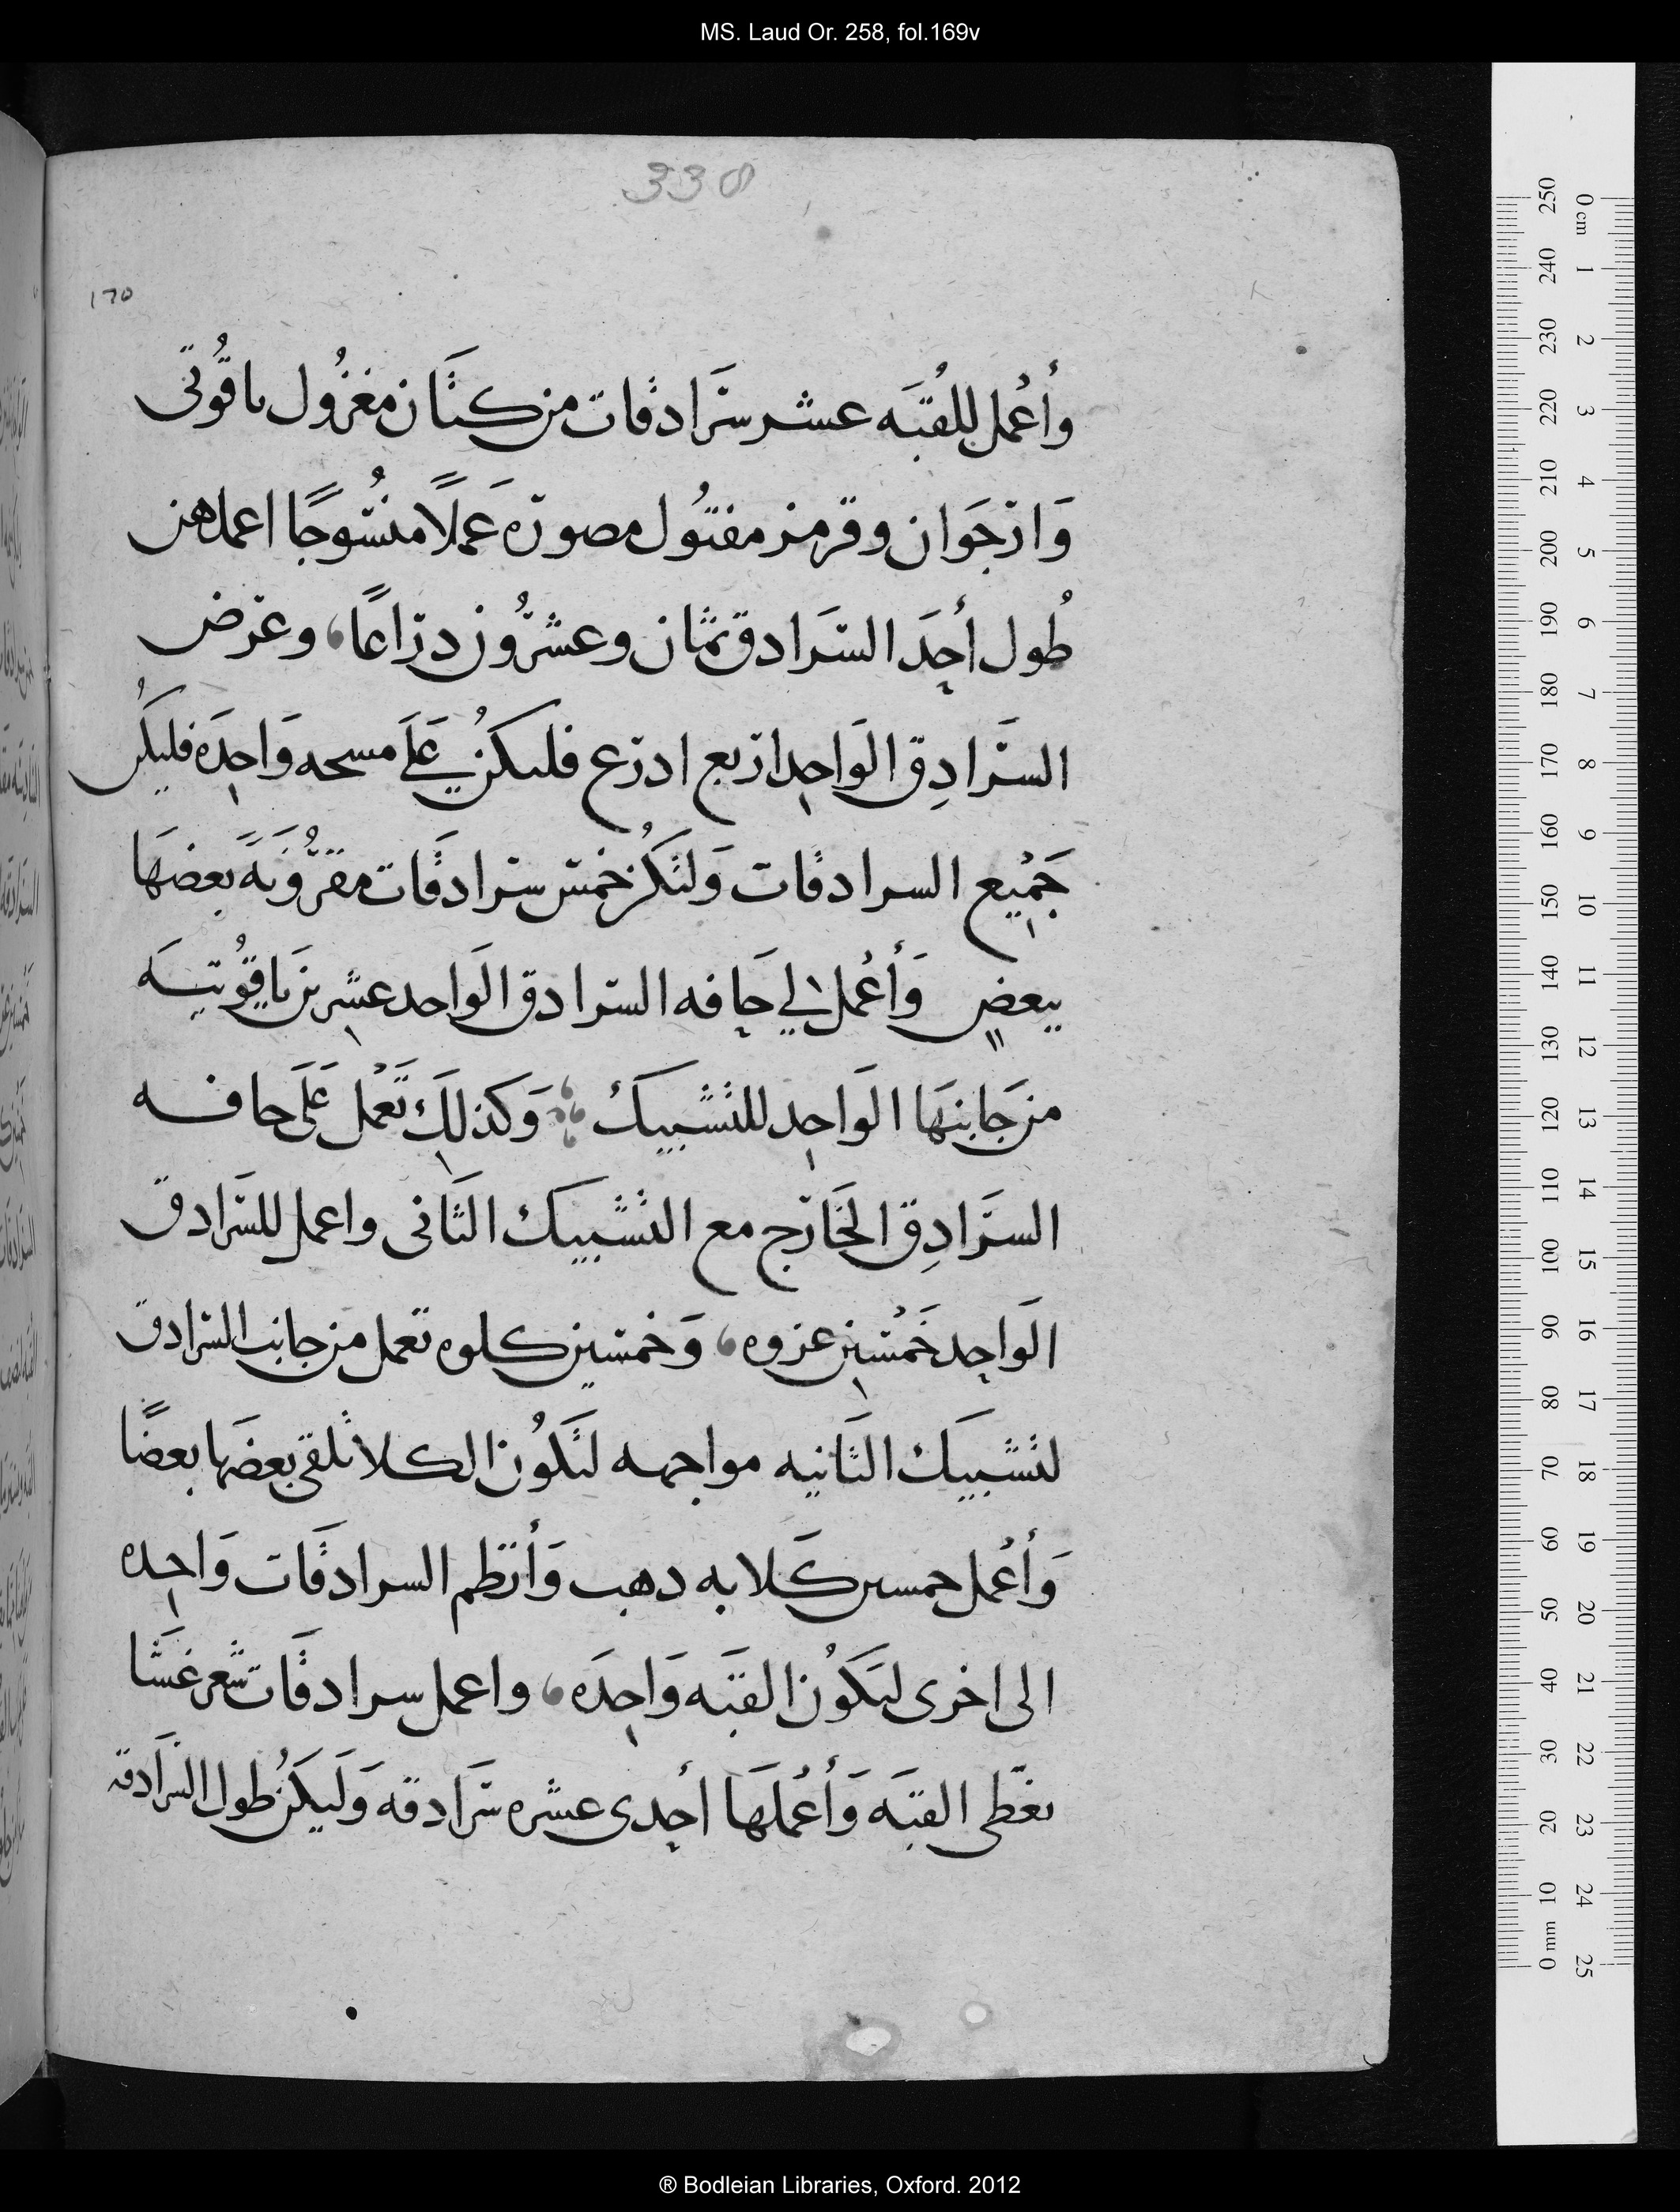 MS. Laud Or. 258, fol.169v
338
١٦٥
وأعْمل للقُبَه عشر سَرَادقات من كتَان مغزُول ياقُوتى
وَارجَوان وقرمز مفتُول مصوره عَملاً منسُوجًا اعملهن
طُول أحَد السَرَادق ثمَان وعشرُون ذراعًا، وعرض
السَرَادِق الوَاحِد اربع اذرع فليكُن عَلَى مسحه وَاحِدَه فليكُن
جَمِيْع السرادقات وَلتَكُن خمس سرادقَات مقرُونَةً بعضهَا
ببعضٍ وَأعْمل الي حَافه السرادق الوَاحد عشرِين يَاقُوتيَه
من جَانبهَا الوَاحِد للتشبيك وَكذلِكَ تَعْمل عَلَى حافه
السَرَادِق الخَارج مع التشبيك الثَانى واعمل للسَرَادق
الوَاحِد خَمْسِين عروه، وَخمسين كلوه تعمل من جانب السرادق
لتشبيك الثَانيه مواجهه لتَكُون الكلا تلقى بعضَها بعضًا
وَأعْمل خمسين كَلابه دهب وَأنظم السرادقَات وَاحِده
الى اخرى لتَكَوُن القبَه وَاحِدَه، واعمل سرادقَات شعر غشَا
تغطى القبَه وَأعْملَهَا أحدى عشره سَرَادقه وَليَكُن طول السَرَادقه
® Bodleian Libraries, Oxford. 2012